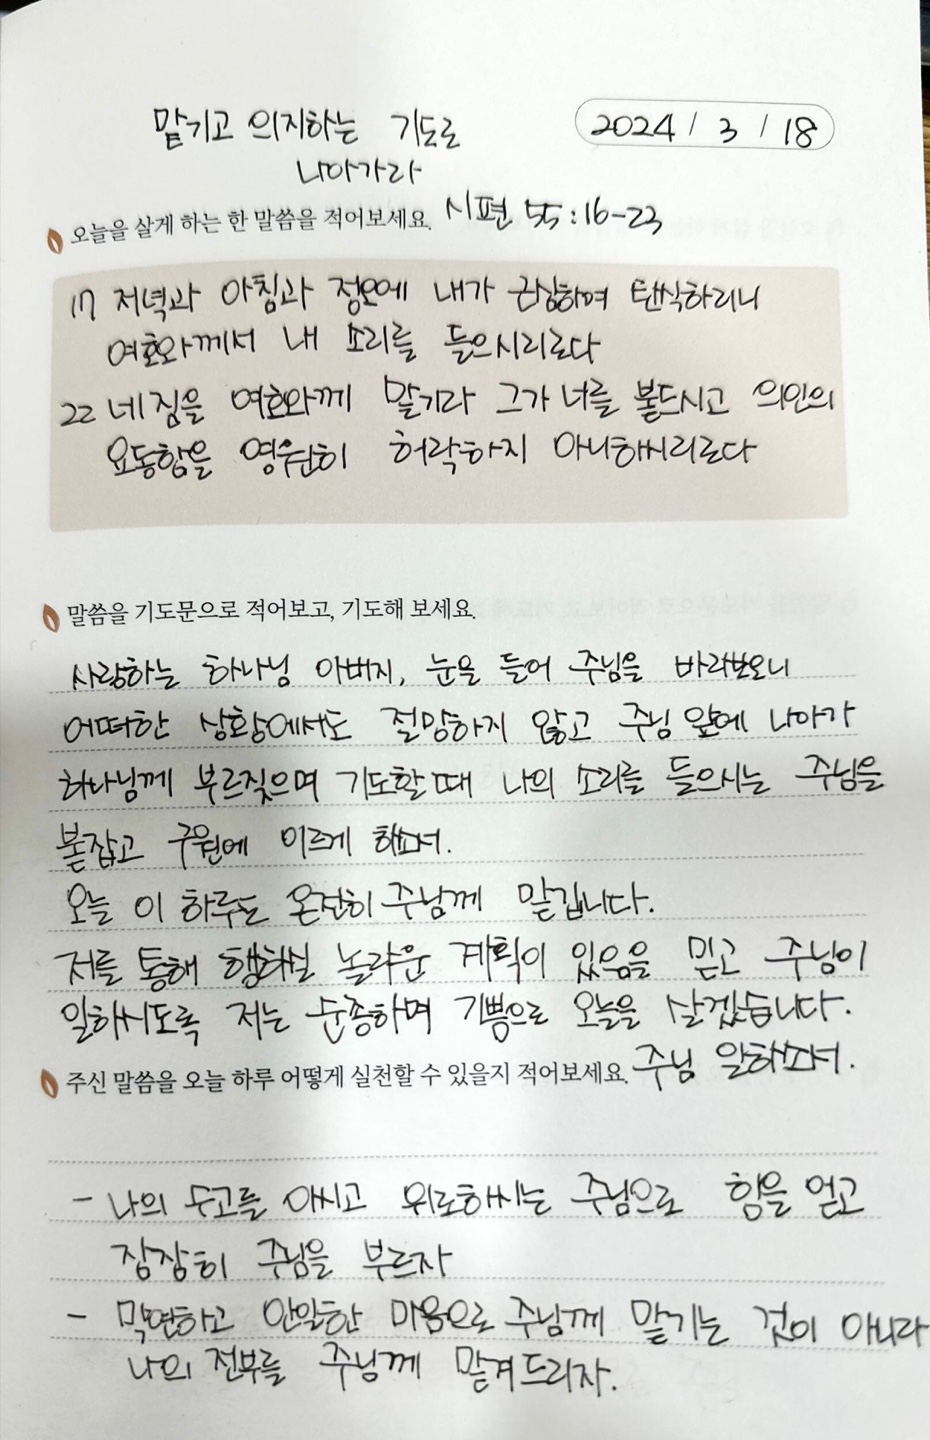 맡기고 의지하는 기도로
나아가라
2024 / 3 / 18
오늘을 살게 하는 한 말씀을 적어보세요. 시편 55:16-23
17 저녁과 아침과 정오에 내가 근심하여 탄식하리니
여호와께서 내 소리를 들으시리로다
22 네 짐을 여호와께 맡기라 그가 너를 붙드시고 의인의
요동함을 영원히 허락하지 아니하시리로다
말씀을 기도문으로 적어보고, 기도해 보세요.
사랑하는 하나님 아버지, 눈을 들어 주님을 바라보오니
어떠한 상황에서도 절망하지 않고 주님 앞에 나아가
하나님께 부르짖으며 기도할 때 나의 소리를 들으시는 주님을
붙잡고 구원에 이르게 하소서.
오늘 이 하루도 온전히 주님께 맡깁니다.
저를 통해 행하실 놀라운 계획이 있음을 믿고 주님이
일하시도록 저는 순종하며 기쁨으로 오늘을 살겠습니다.
주신 말씀을 오늘 하루 어떻게 실천할 수 있을지 적어보세요. 주님 일하소서.
- 나의 수고를 아시고 위로하시는 주님으로 힘을 얻고
잠잠히 주님을 부르자
- 막연하고 안일한 마음으로 주님께 맡기는 것이 아니라
나의 전부를 주님께 맡겨드리자.